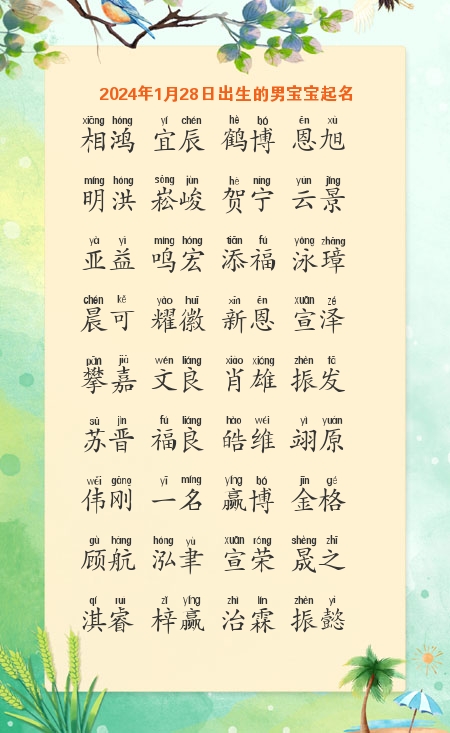 2024年1月28日出生的男宝宝起名
xiāng hóng yí chén hè bó ēn xù
相鸿 宜辰 鹤博 恩旭
míng hóng sōng jùn hè níng yún jǐng
明洪 崧峻 贺宁 云景
yà yì míng hóng tiān fú yǒng zhāng
亚益 鸣宏 添福 泳璋
chén kě yào huī xīn ēn xuān zé
晨可 耀徽 新恩 宣泽
pān jiā wén liáng xiào xióng zhèn fā
攀嘉 文良 肖雄 振发
sū jìn fú liáng hào wéi yì yuán
苏晋 福良 皓维 翊原
wěi gāng yī míng yíng bó jīn gé
伟刚 一名 赢博 金格
gù háng hóng yù xuān róng shèng zhī
顾航 泓聿 宣荣 晟之
qí ruì zǐ yíng zhì lín zhèn yì
淇睿 梓赢 治霖 振懿